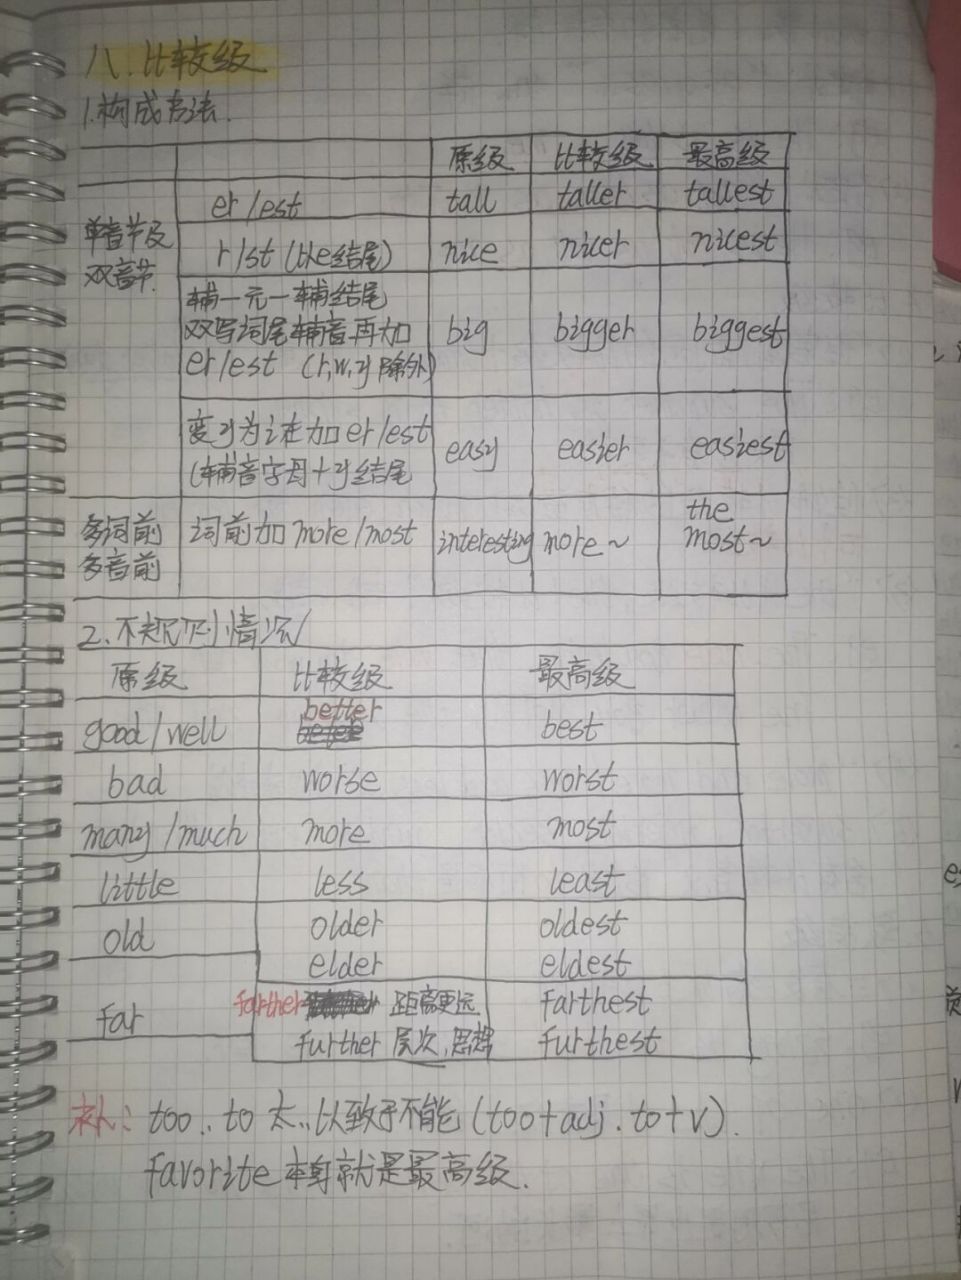 八.比较级
1.构成方法.
原级 比较级 最高级
单音节及
双音节.
er/est tall taller tallest
r/st (以e结尾) nice nicer nicest
辅一元一辅结尾
双写词尾辅音再加
er/est (r,w,y除外)
big bigger biggest
变y为i在加er/est
(辅音字母+y结尾
easy easier easiest
多词前
多音前
词前加more/most interesting more~ the
most~
2.不规则情况
原级 比较级 最高级
good/well better best
bad worse worst
many/much more most
little less least
old older oldest
elder eldest
far farther 距离更远 farthest
further 层次,思想 furthest
补: too..to 太..以致于不能(too+adj.to+v).
favorite本身就是最高级.